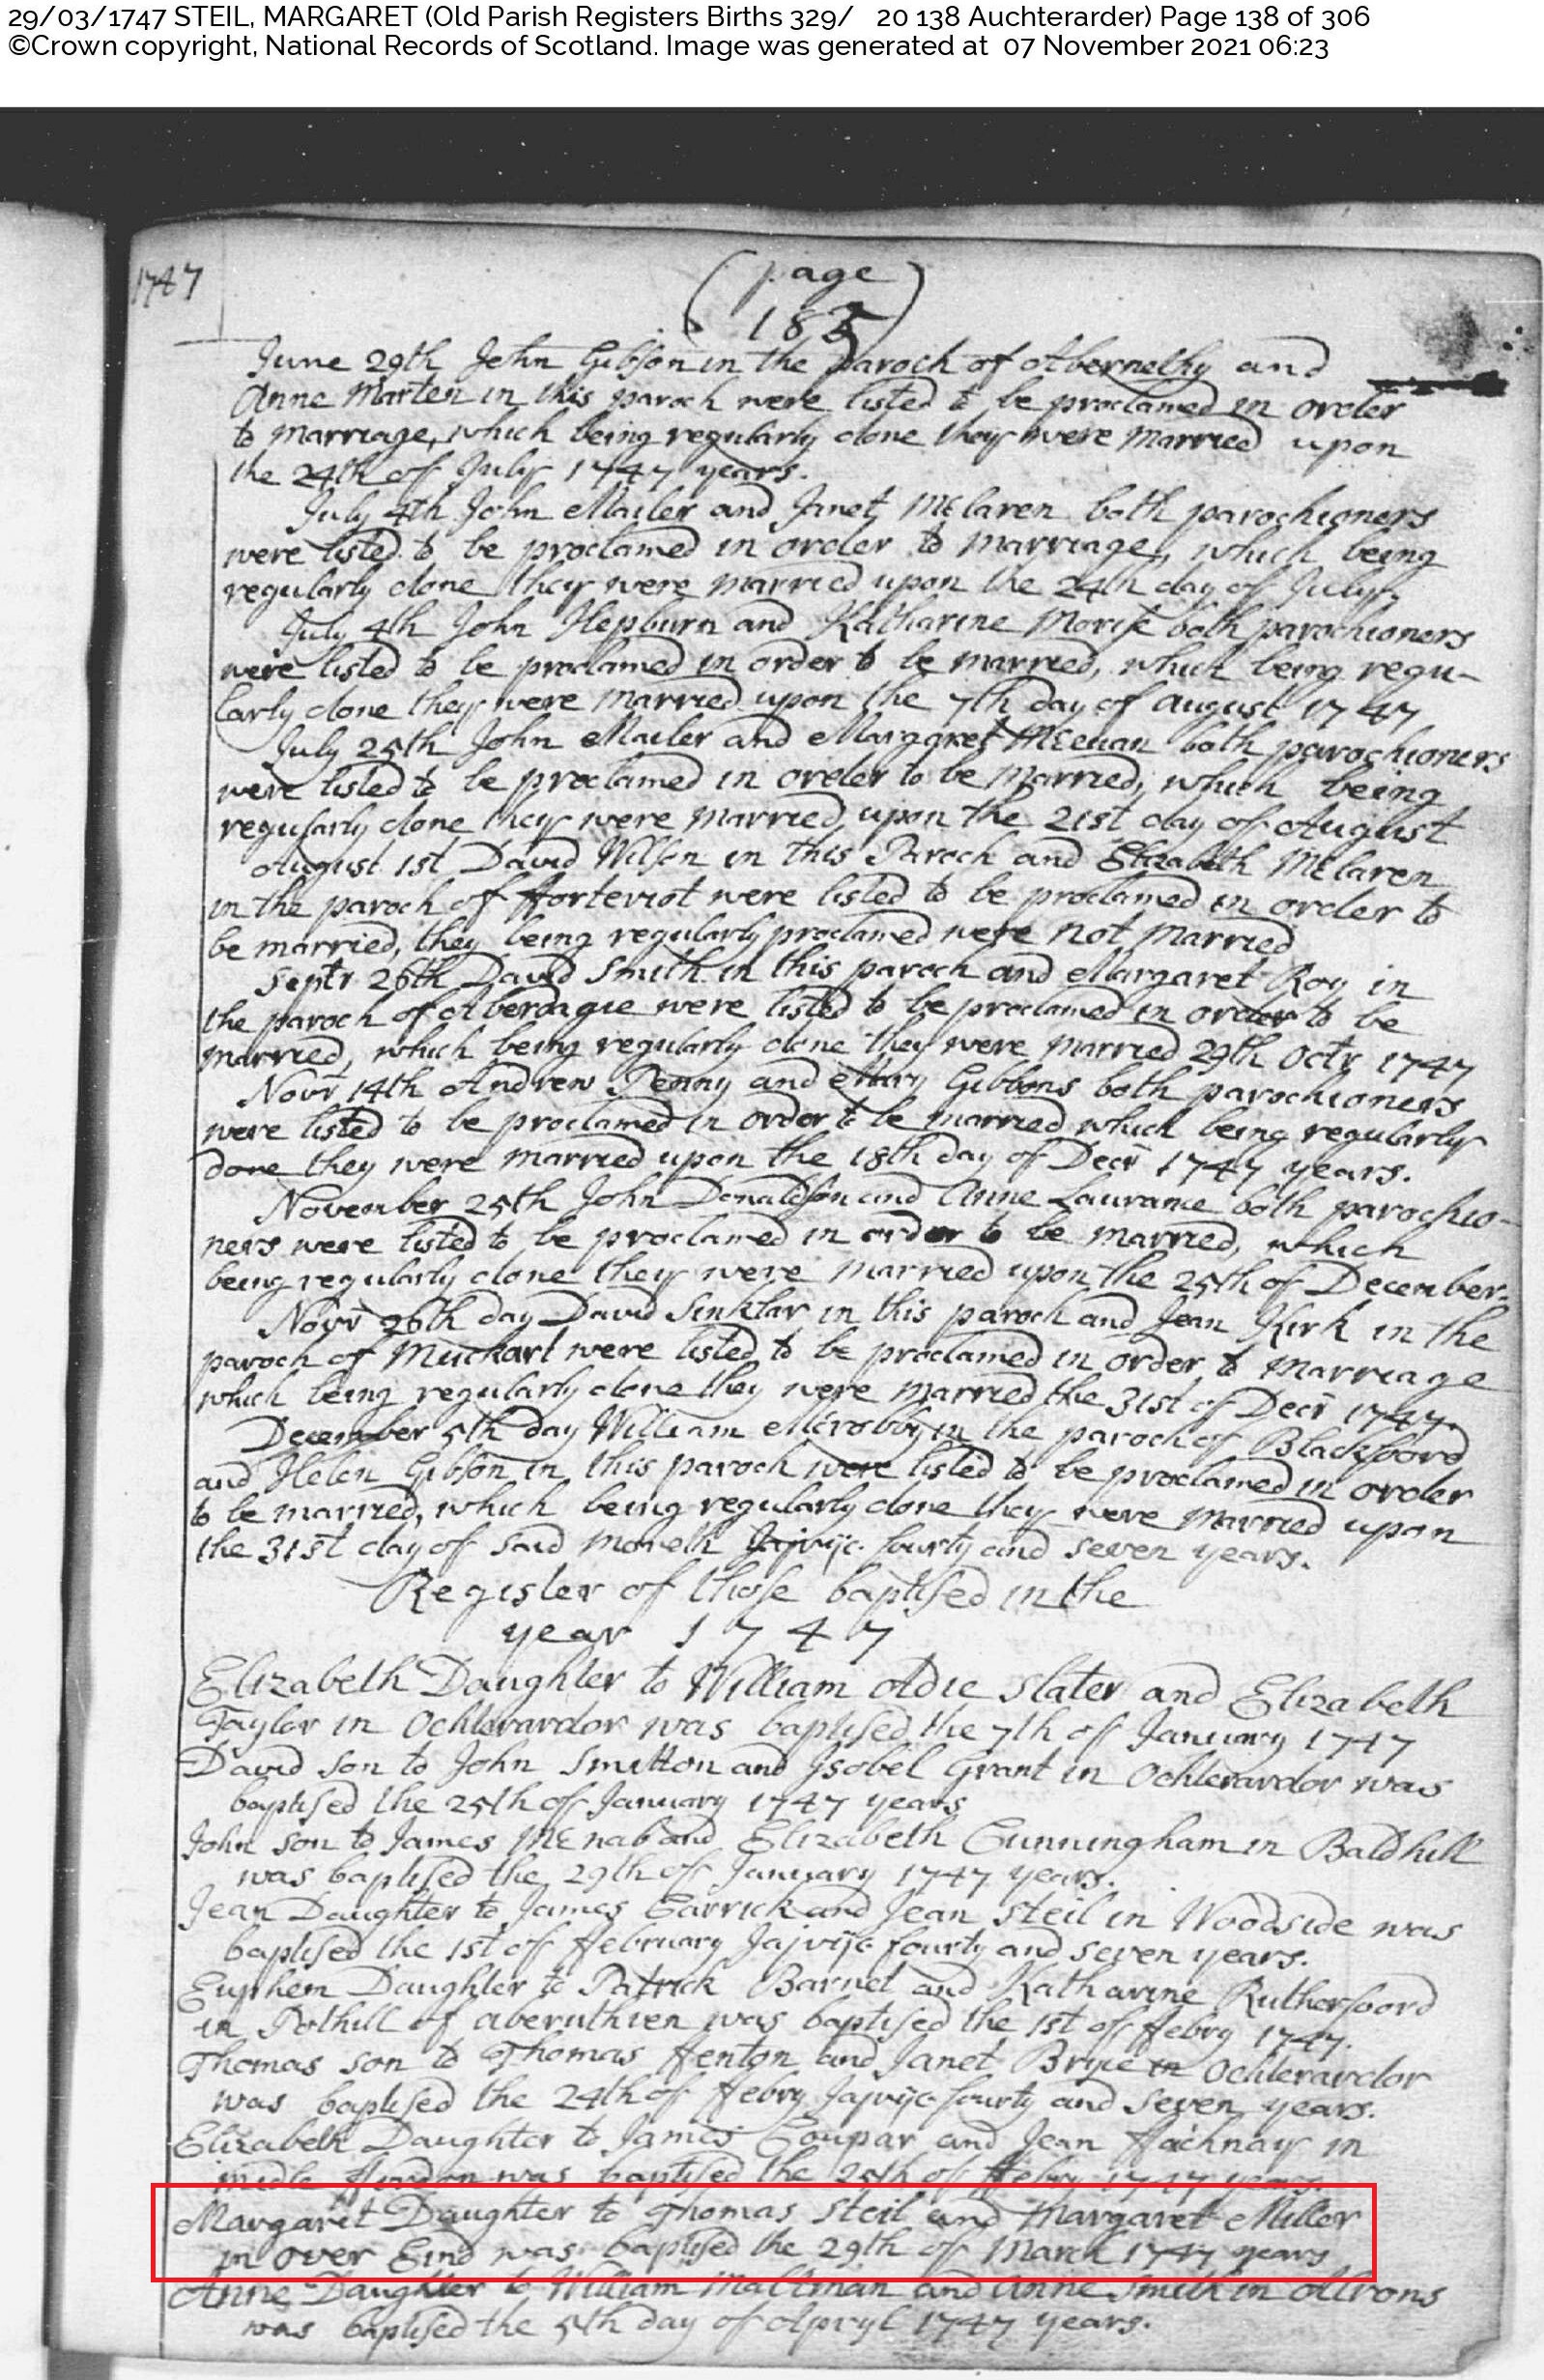 29/03/1747 STEIL, MARGARET (Old Parish Registers Births 329/ 20 138 Auchterarder) Page 138 of 306
©Crown copyright, National Records of Scotland. Image was generated at 07 November 2021 06:23
1747
(page
183)
June 29th John Gibson in the paroch of Abernethy and
Anne Marten in this paroch were listed to be proclamed in order
to marriage, which being regularly done they were married upon
the 24th of July 1747 years.
July 4th John Mailer and Janet McLaren both parochioners
were listed to be proclamed in order to marriage, which being
regularly done they were married upon the 24th day of July.
July 4th John Hepburn and Katharine both parochioners
were listed to be proclamed in order to be married, which being regu-
larly done they were married upon the 7th day of August 1747
July 25th John Mailer and Margaret McEuan both parochioners
were listed to be proclamed in order to be married, which being
regularly done they were married upon the 21st day of August
August 1st David Wilson in this Paroch and Elizabeth McLaren
in the paroch of fforteviot were listed to be proclamed in order to
be married, they being regularly proclamed were not married
Septr 26th David Smith in this paroch and Margaret Roy in
the paroch of Aberdagie were listed to be proclamed in order to be
married, which being regularly done they were married 29th Octr 1747
Novr 14th Andrew Penny and Mary Gibbons both parochioners
were listed to be proclamed in order to be married which being regularly
done they were married upon the 18th day of Decr 1747 years.
November 25th John Donaldson and Anne Laurance both parochio-
ners were listed to be proclamed in order to be married, which
being regularly done they were married upon the 25th of December.
Novr 26th day David Sinklar in this paroch and Jean Kirk in the
paroch of Muckart were listed to be proclamed in order to marriage
which being regularly done they were married the 31st of Decr 1747.
December 5th day William Mcrobby in the paroch of Blackfoord
and Helen Gibson in this paroch were listed to be proclamed in order
to be married, which being regularly done they were married upon
the 31st day of said moneth Jajvijc fourty and seven years.
Register of those baptised in the
year 1747
Elizabeth Daughter to William Adie slater and Elizabeth
Taylor in Ochterardor was baptised the 7th of January 1747
David son to John Smitton and Isobel Grant in Ochterardor was
baptised the 25th of January 1747 years
John son to James McNab and Elizabeth Cunningham in Baldhill
was baptised the 29th of January 1747 years.
Jean Daughter to James Carrick and Jean Steil in Woodside was
baptised the 1st of ffebruary Jajvijc fourty and seven years.
Euphem Daughter to Patrick Barnet and Katharine Rutherfoord
in Pothill of aberuthven was baptised the 1st of ffebry 1747.
Thomas son to Thomas ffenton and Janet Bryce in Ochterardor
was baptised the 24th of ffebry Jajvijc fourty and seven years.
Elizabeth Daughter to James Coupar and Jean ffachnay in
midle was baptised the 25th of ffebry 1747 years.
Margaret Daughter to Thomas Steil and Margaret Miller
in Over Cind was baptised the 29th of March 1747 years
Anne Daughter to William Maltman and Anne Smith in
was baptised the 5th day of Apryl 1747 years.